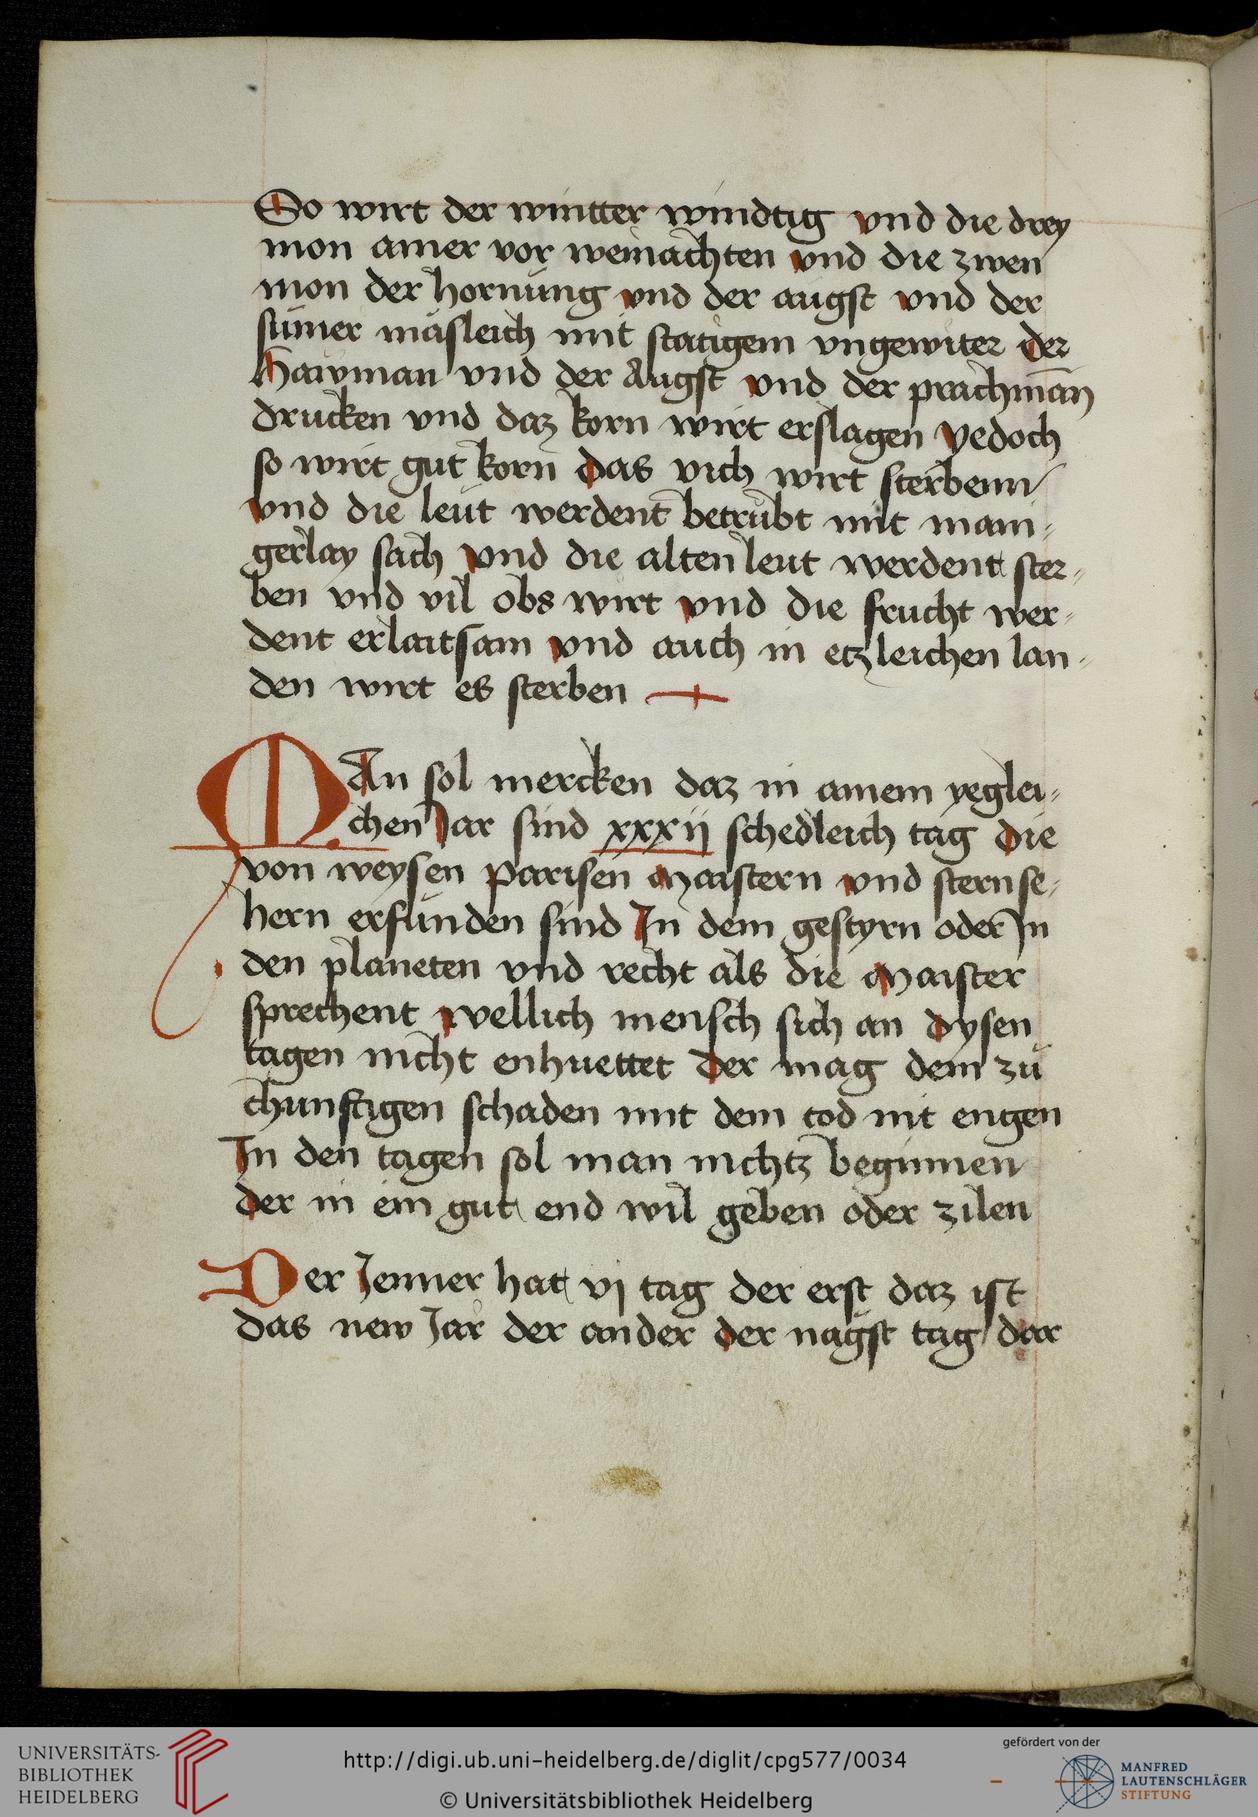 So wirt der wintter windtig vnd die drey
mon ainer vor weinachten vnd die zwen
mon der hornung vnd der augst vnd der
sumer mäsleich mit statigem vngewiter der
Hawman vnd der Augst vnd der prachman
drucken vnd daz korn wirt erslagen yedoch
so wirt gut korn das vich wirt sterbenn
vnd die leut werdent betrubt mit mani-
gerlay sach vnd die alten leut werdent ster-
ben vnd vil obs wirt vnd die frucht wer-
dent erlaitsam vnd auch in etzleichen lan-
den wirt es sterben
MAn sol mercken daz in ainem yeglei-
chen Jar sind xxxij schedleich tag die
von weysen parisen Maistern vnd sternse-
hern erfunden sind In dem gestyrn oder In
den planeten vnd recht als die Maister
sprechent wellich mensch sich an dysen
tagen nicht enhuettet der mag dem zu
chunftigen schaden mit dem tod nit engen
In den tagen sol man nichtz beginnen
der in ein gut end wil geben oder zilen
Der Jenner hat vj tag der erst daz ist
das new Jar der ander der nagst tag dar
UNIVERSITÄTS-
BIBLIOTHEK
HEIDELBERG
http://digi.ub.uni-heidelberg.de/diglit/cpg577/0034
© Universitätsbibliothek Heidelberg
gefördert von der
MANFRED
LAUTENSCHLÄGER
STIFTUNG